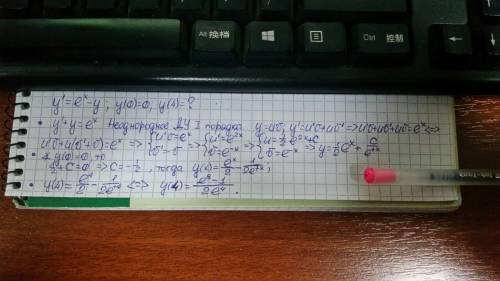 Alt 换档
Ctrl 控制
y' = eˣ - y, y(0)=0, y(4)=?
• y'+y=eˣ Неоднородное ДУ I порядка. y=uv; y'=u'v+uv' => u'v+uv'+uv=eˣ <=>
u'v+u(v'+v)=eˣ => {u'v=eˣ; v'=-v => {u'=e²ˣ; v=e⁻ˣ => {u=½e²ˣ+C; v=e⁻ˣ => y=½eˣ+C/eˣ
• y(0)=0,
½+C=0 => C=-½, тогда y(x)=eˣ/2 - 1/2eˣ;
• y(4)=e⁴/2 - 1/2e⁴ <=> y(4)=(e⁸-1)/2e⁴.